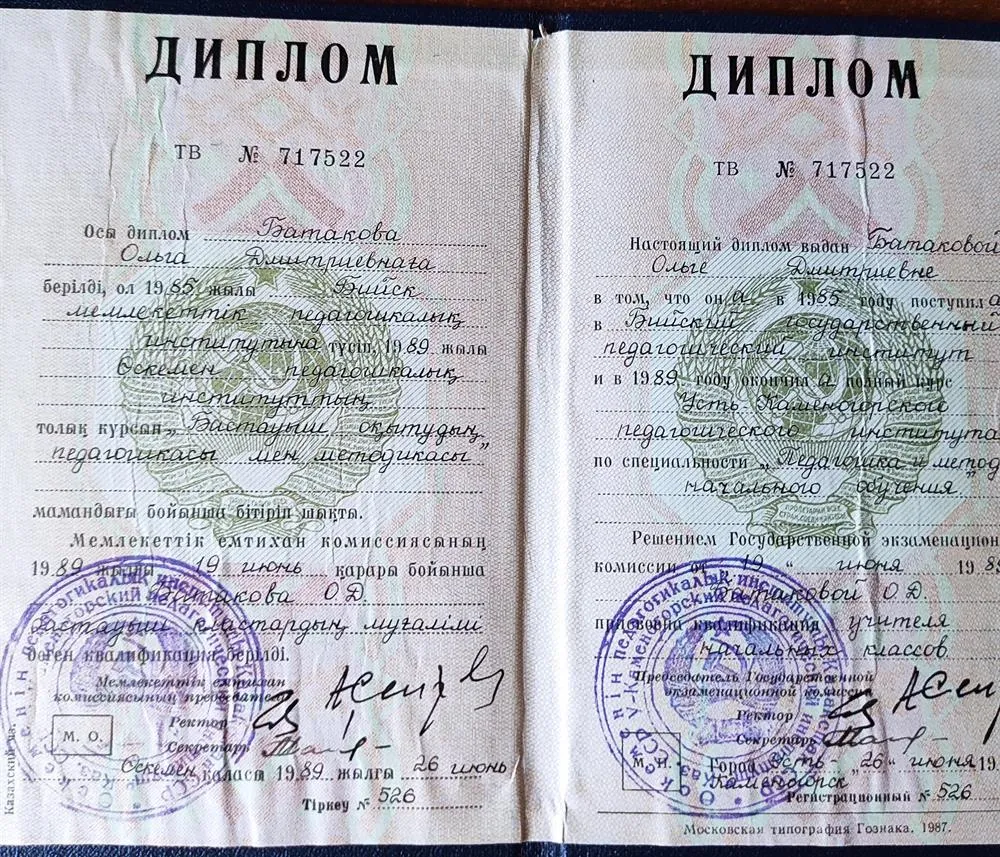 ДИПЛОМ
ТВ № 717522
Осы диплом Батакова
Ольга Дмитриевнаға
берілді, ол 1985 жылы Бийск
мемлекеттік педагогикалық
институтына түсіп, 1989 жылы
Өскемен педагогикалық
институттың
толық курсын „Бастауыш оқытудың
педагогикасы мен методикасы"
мамандығы бойынша бітіріп шықты.
Мемлекеттік емтихан комиссиясының
1989 жылғы 19 июнь қарары бойынша
Батакова О.Д.
бастауыш кластардың мұғалімі
деген квалификация берілді.
Мемлекеттік емтихан
комиссиясының председателі
Ректор
Секретарь
М. О.
Өскемен қаласы 1989 жылғы 26 июнь
Тіркеу № 526
ДИПЛОМ
ТВ № 717522
Настоящий диплом выдан Батаковой
Ольге Дмитриевне
в том, что она в 1985 году поступила
в Бийский государственный
педагогический институт
и в 1989 году окончила полный курс
Усть-Каменогорского
педагогического института
по специальности „Педагогика и метод
начального обучения"
ПРОЛЕТАРИИ ВСЕХ
СТРАН, СОЕДИНЯЙТЕСЬ!
Решением Государственной экзаменацион
комиссии от „19" июня 198
Батаковой О.Д.
присвоена квалификация учителя
начальных классов
Председатель Государственной
экзаменационной комиссии
Ректор
Секретарь
М. П.
Город Усть- „26" июня 19
Каменогорск
Регистрационный № 526
Московская типография Гознака. 1987.